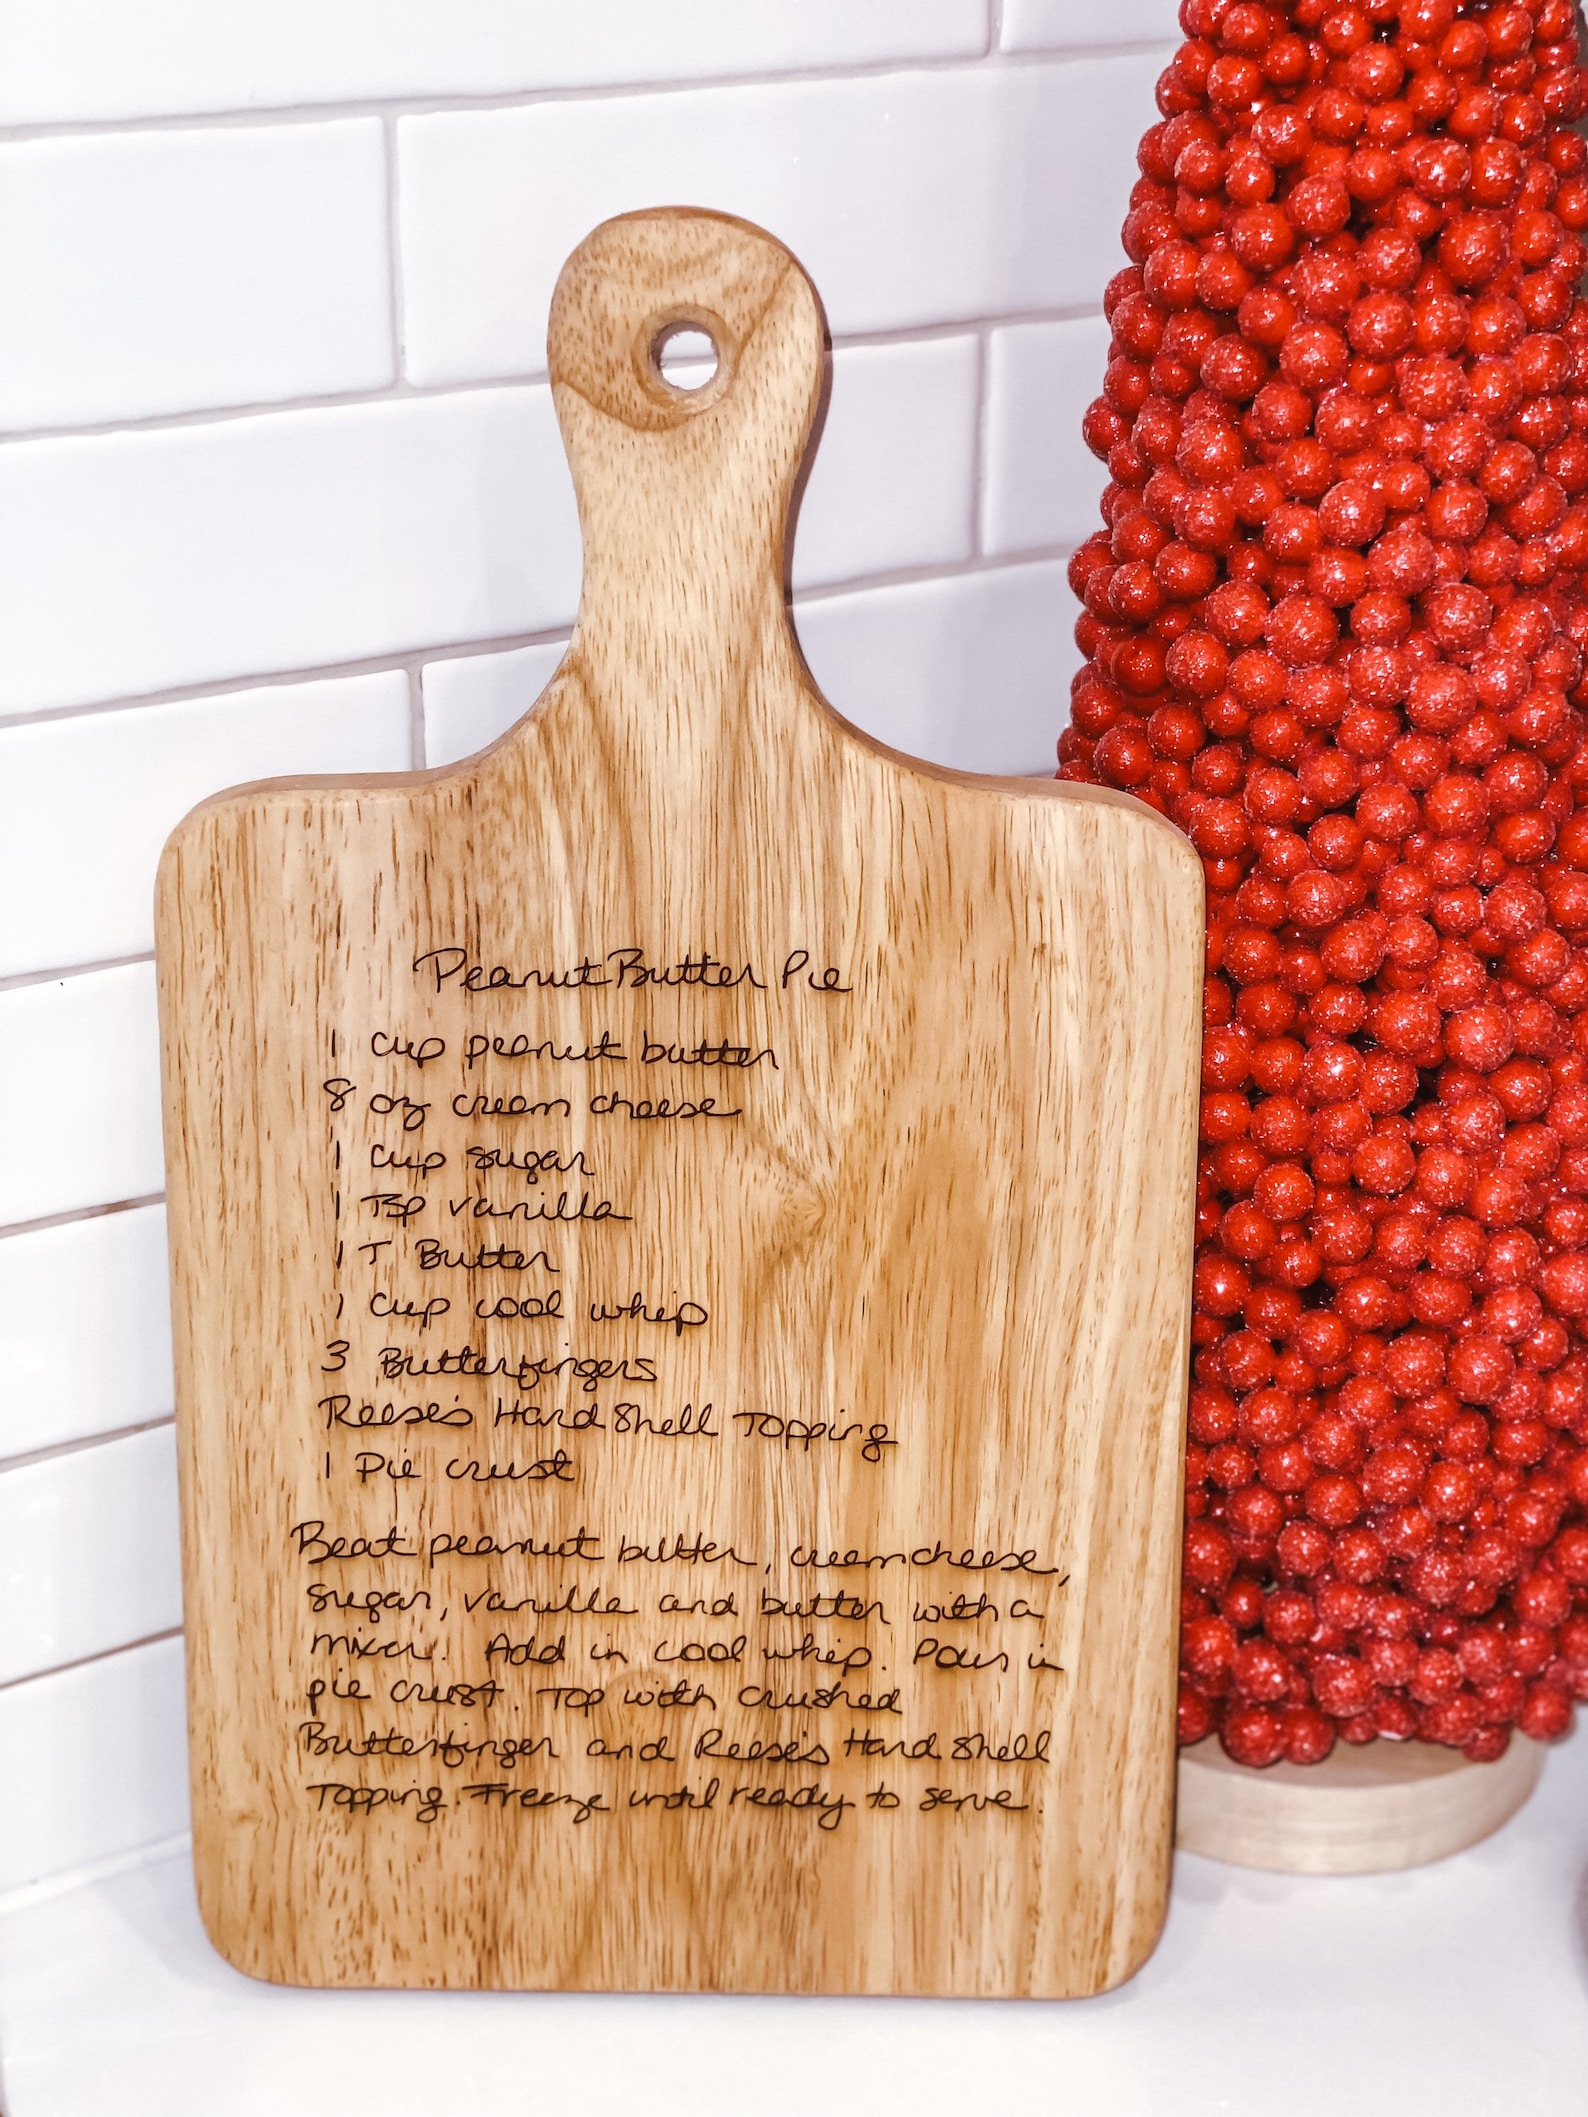 Peanut Butter Pie
1 cup peanut butter
8 oz cream cheese
1 cup sugar
1 Tsp vanilla
1 T Butter
1 cup cool whip
3 Butterfingers
Reese's Hard Shell Topping
1 Pie crust
Beat peanut butter, cream cheese,
sugar, vanilla and butter with a
mixer. Add in cool whip. Pour in
pie crust. Top with crushed
Butterfinger and Reese's Hard Shell
Topping. Freeze until ready to serve.